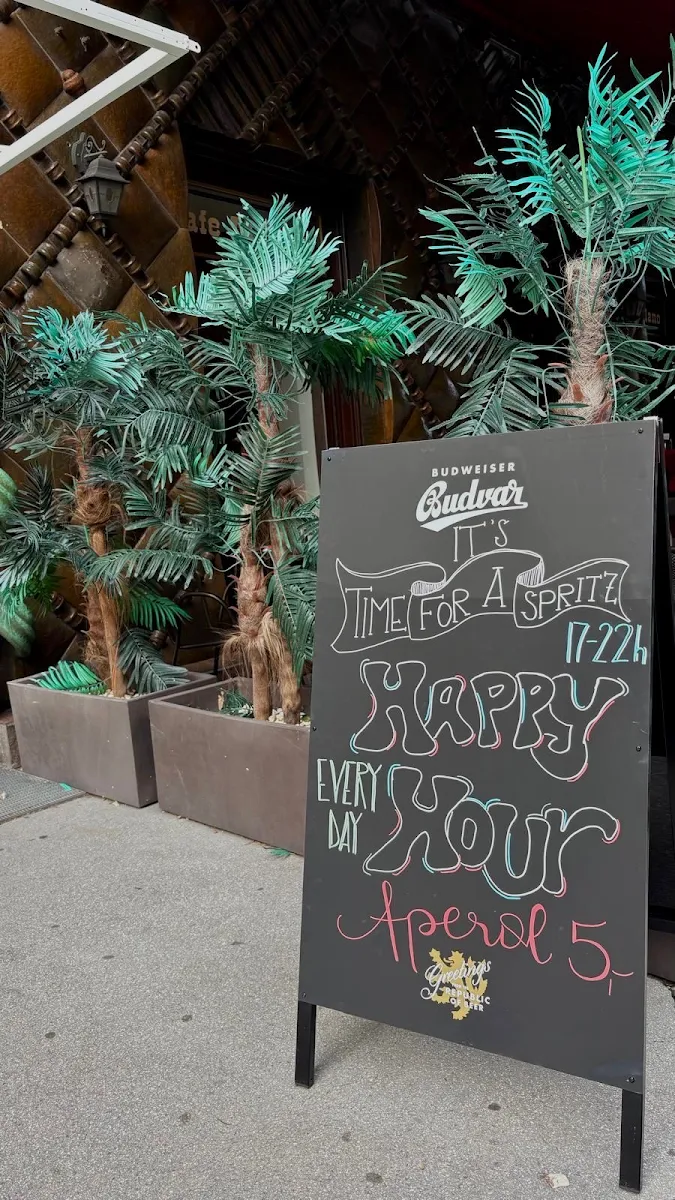 BUDWEISER
Budvar
IT'S
TIME FOR A SPRITZ
17-22h
HAPPY
EVERY
DAY
HOUr
Aperol 5,-
Greetings
REPUBLIC
OF BEER